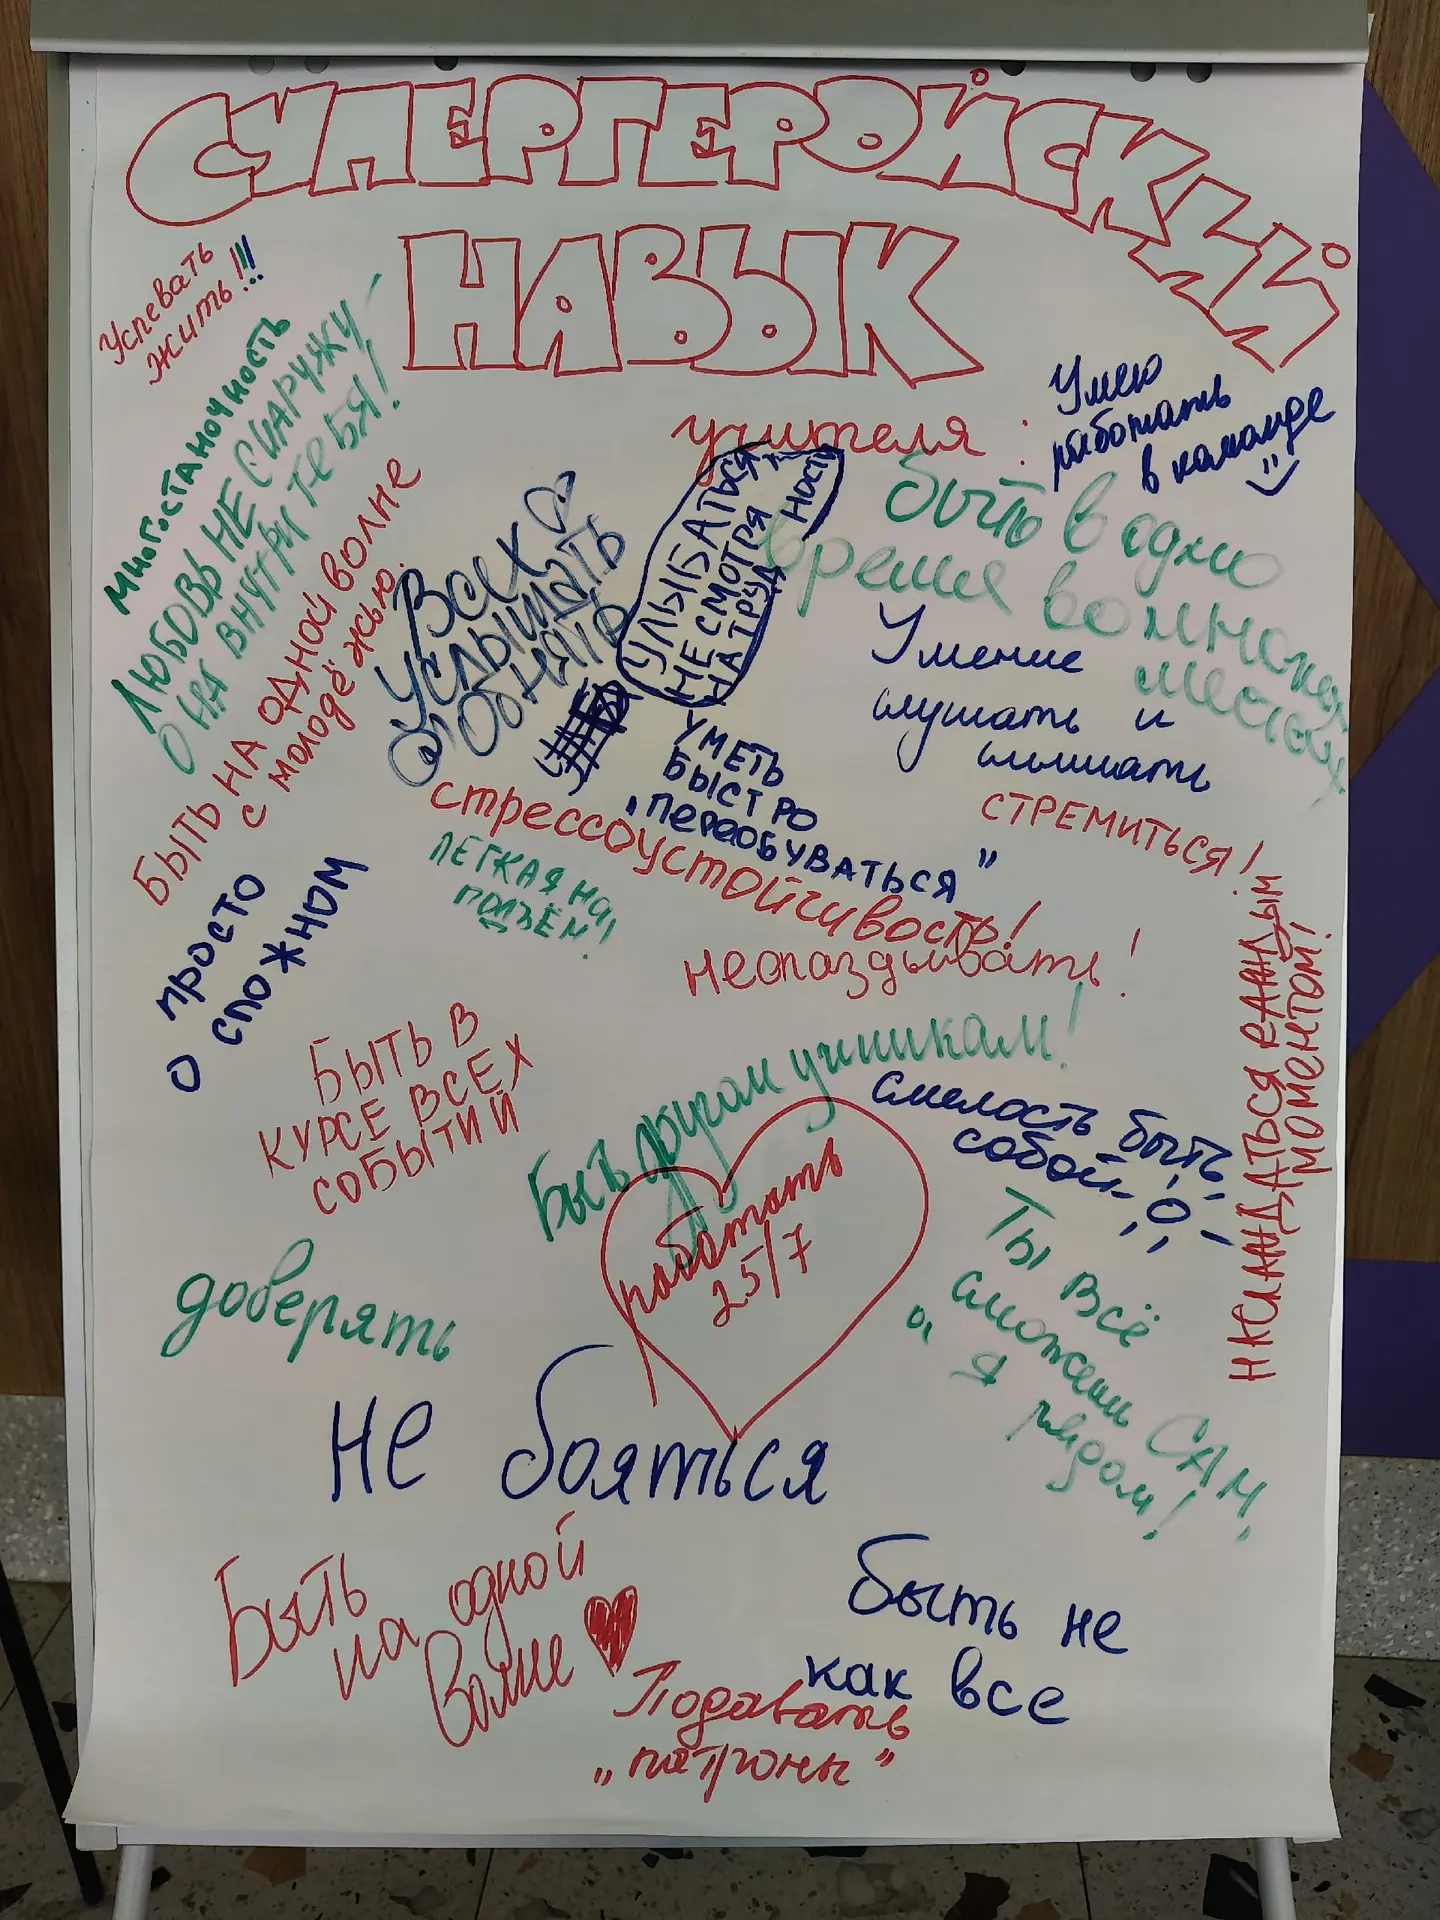 СУПЕРГЕРОЙСКИЙ
НАВЫК
учителя:
Успевать
жить!!!
многостаночность
ЛЮБОВЬ НЕ СНАРУЖУ-
ОНА ВНУТРИ ТЕБЯ!
БЫТЬ НА ОДНОЙ ВОЛНЕ
с молодёжью.
Всех
услышать
Обнять
УЛЫБАТЬСЯ
НЕ СМОТРЯ
НА ТРУД
НОСТИ
Умею
работать
в команде
быть в одно
время во многих
местах
Умение
слушать и
слышать
УМЕТЬ
БЫСТРО
"ПЕРЕОБУВАТЬСЯ"
СТРЕМИТЬСЯ!
стрессоустойчивость!
ЛЕГКАЯ НА
ПОДЪЁМ!
неопаздывать!
просто
о сложном
БЫТЬ В
КУРСЕ ВСЕХ
СОБЫТИЙ
Быть другом ученикам!
смелость быть
собой
НАСЛАЖДАТЬСЯ КАЖДЫМ
МОМЕНТОМ!
работать
25/7
Ты всё
сможешь САМ,
а я
рядом!
доверять
не бояться
Быть
на одной
волне
быть не
как все
Подавать
"патроны"